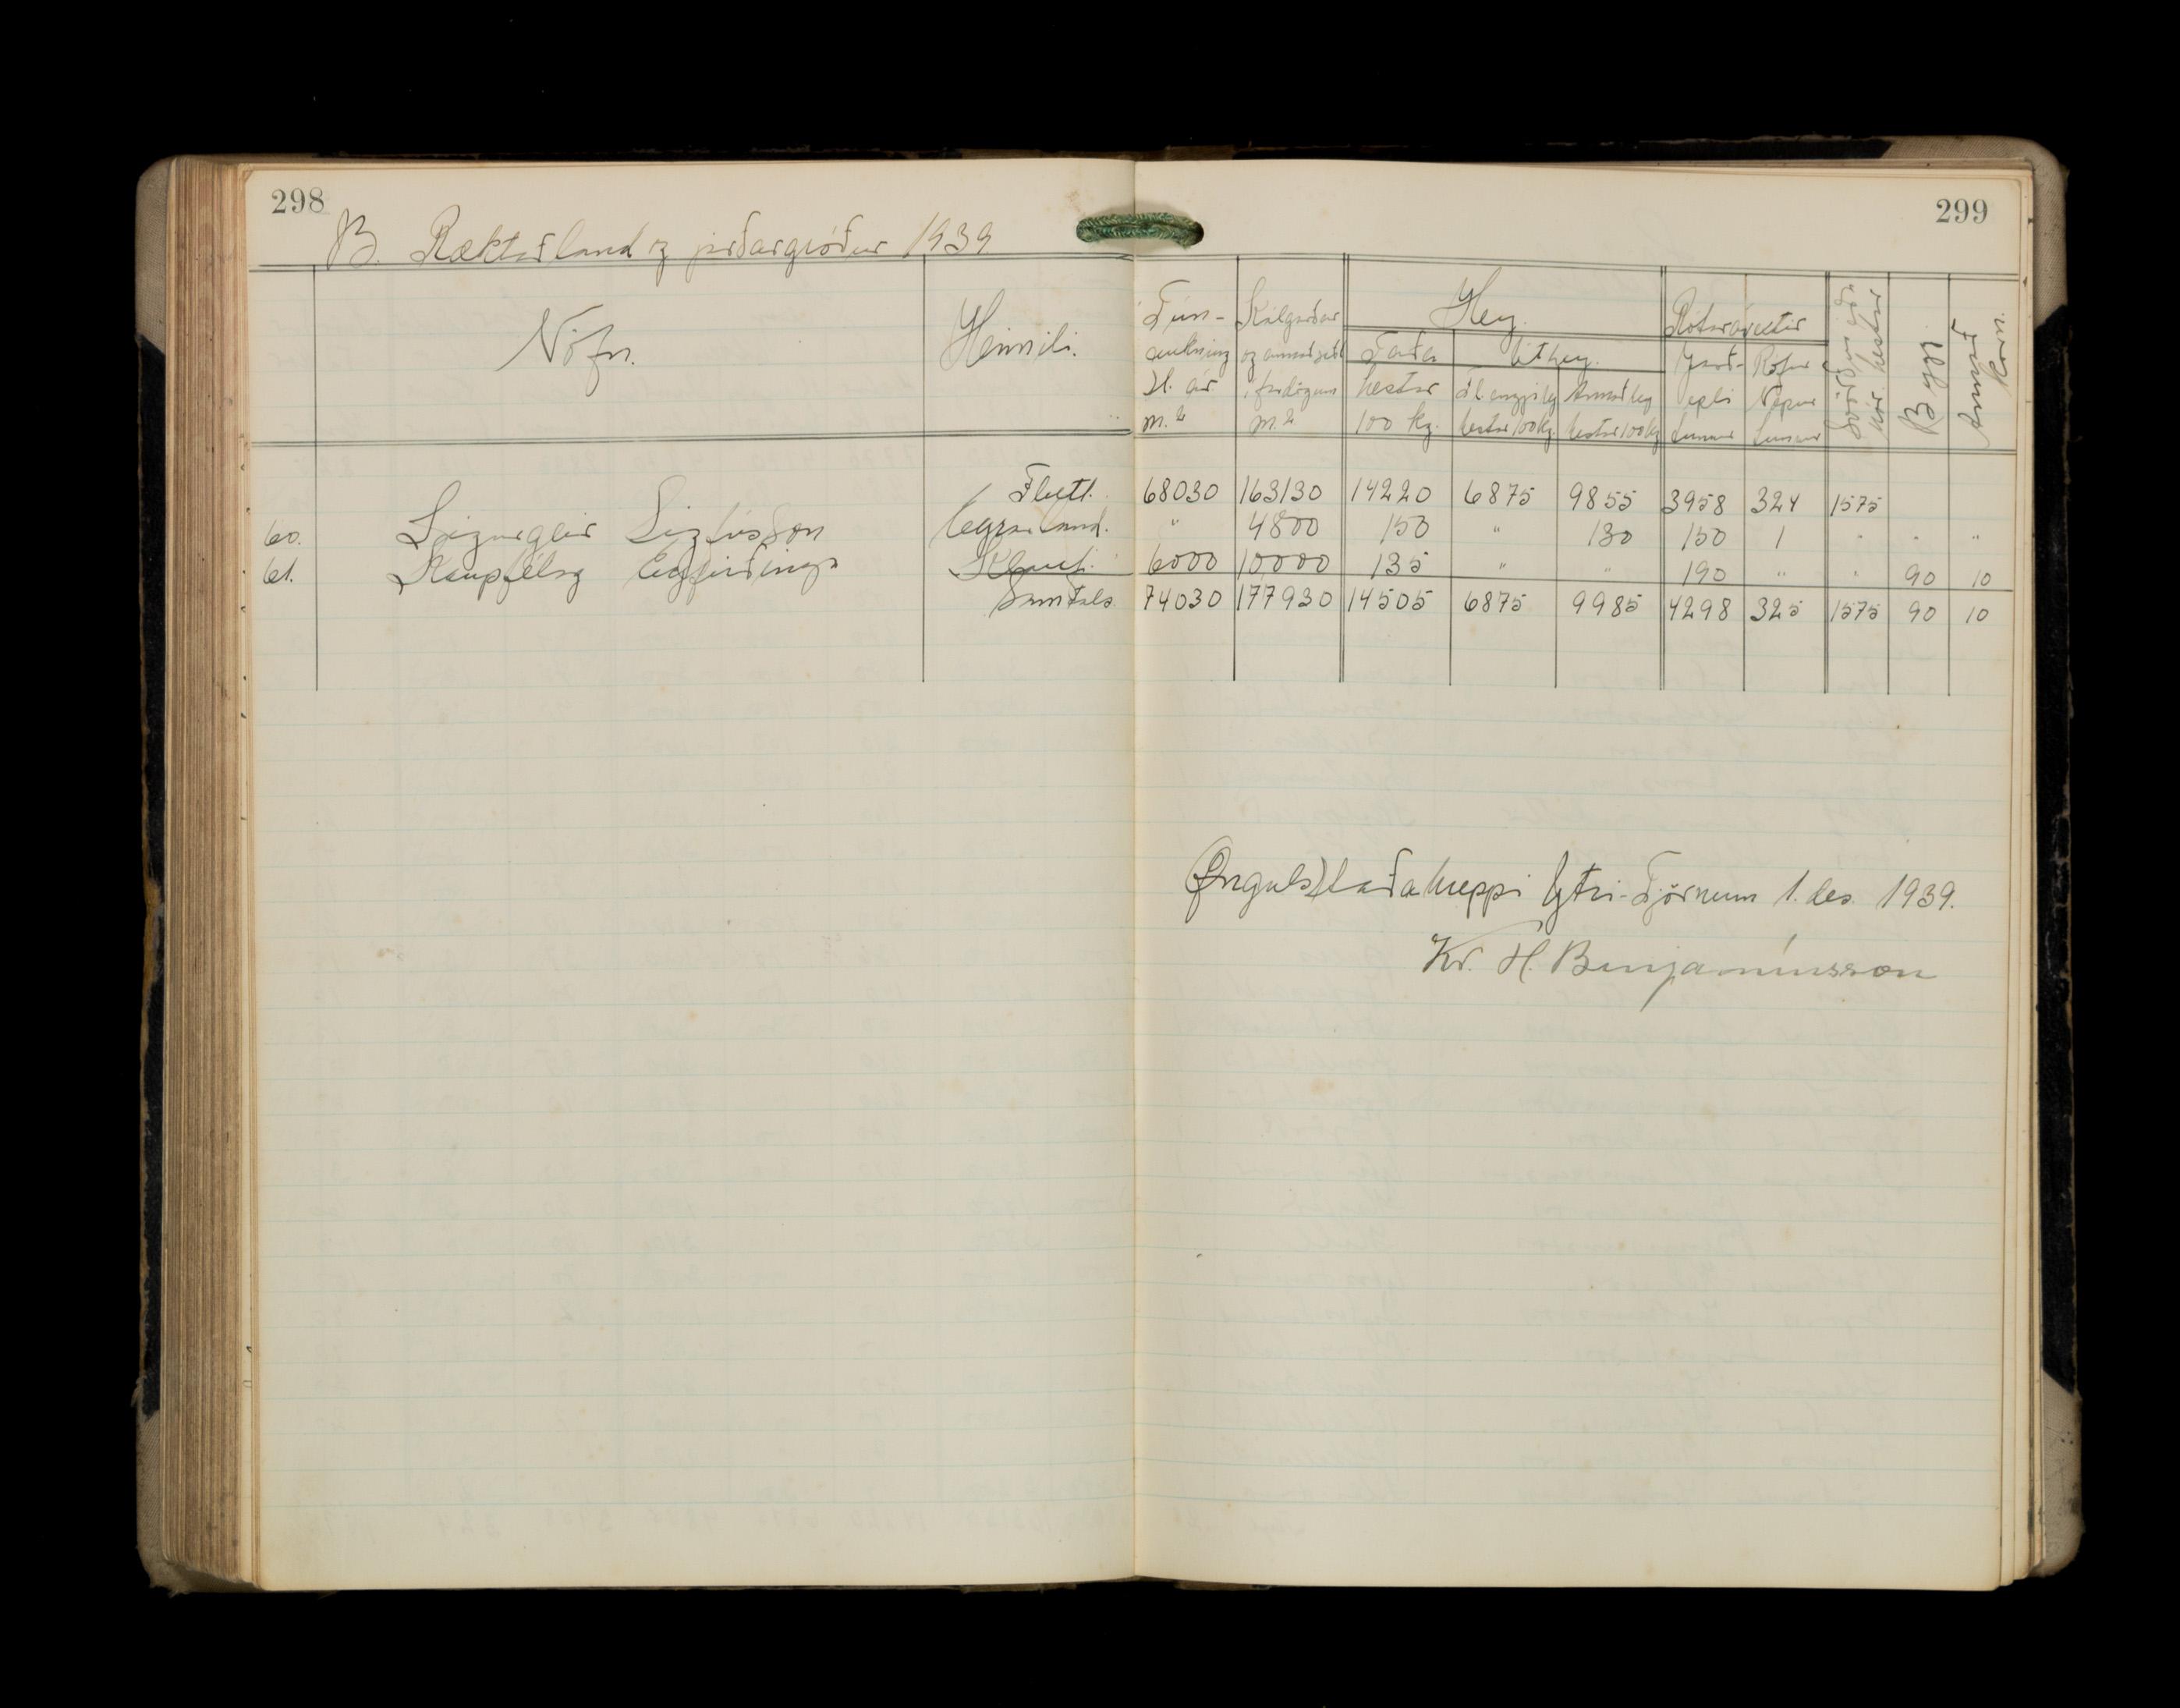 298
299
B. Ræktað land og jarðargróður 1939
Nöfn.
Heimili.
Tún-
aukning
sl. ár
m.²
Kálgarðar
og annað sáðl.
í
m.²
Hey.
Taða
hestar
100 kg.
Úthey.
Áf. engjihey
hestar 100 kg.
Annað hey
hestar 100 kg
Rótarávextir
Jarð-
epli
tunnur
Rófur
Næpur
tunnur
hestar
Bygg
Annað
korn.
Flutt. 68030 163130 14220 6875 9855 3958 324 1575
60. Sigurgeir Sigfússon Eyrarland. " 4800 150 " 130 150 1 " " "
61. Kaupfélag Eyfirðinga Klauf. 6000 10000 135 " " 190 " " 90 10
Samtals 74030 177930 14505 6875 9985 4298 325 1575 90 10
Öngulsstaðahreppi Ytri-Tjörnum 1. des. 1939.
Kr. H. Benjamínsson